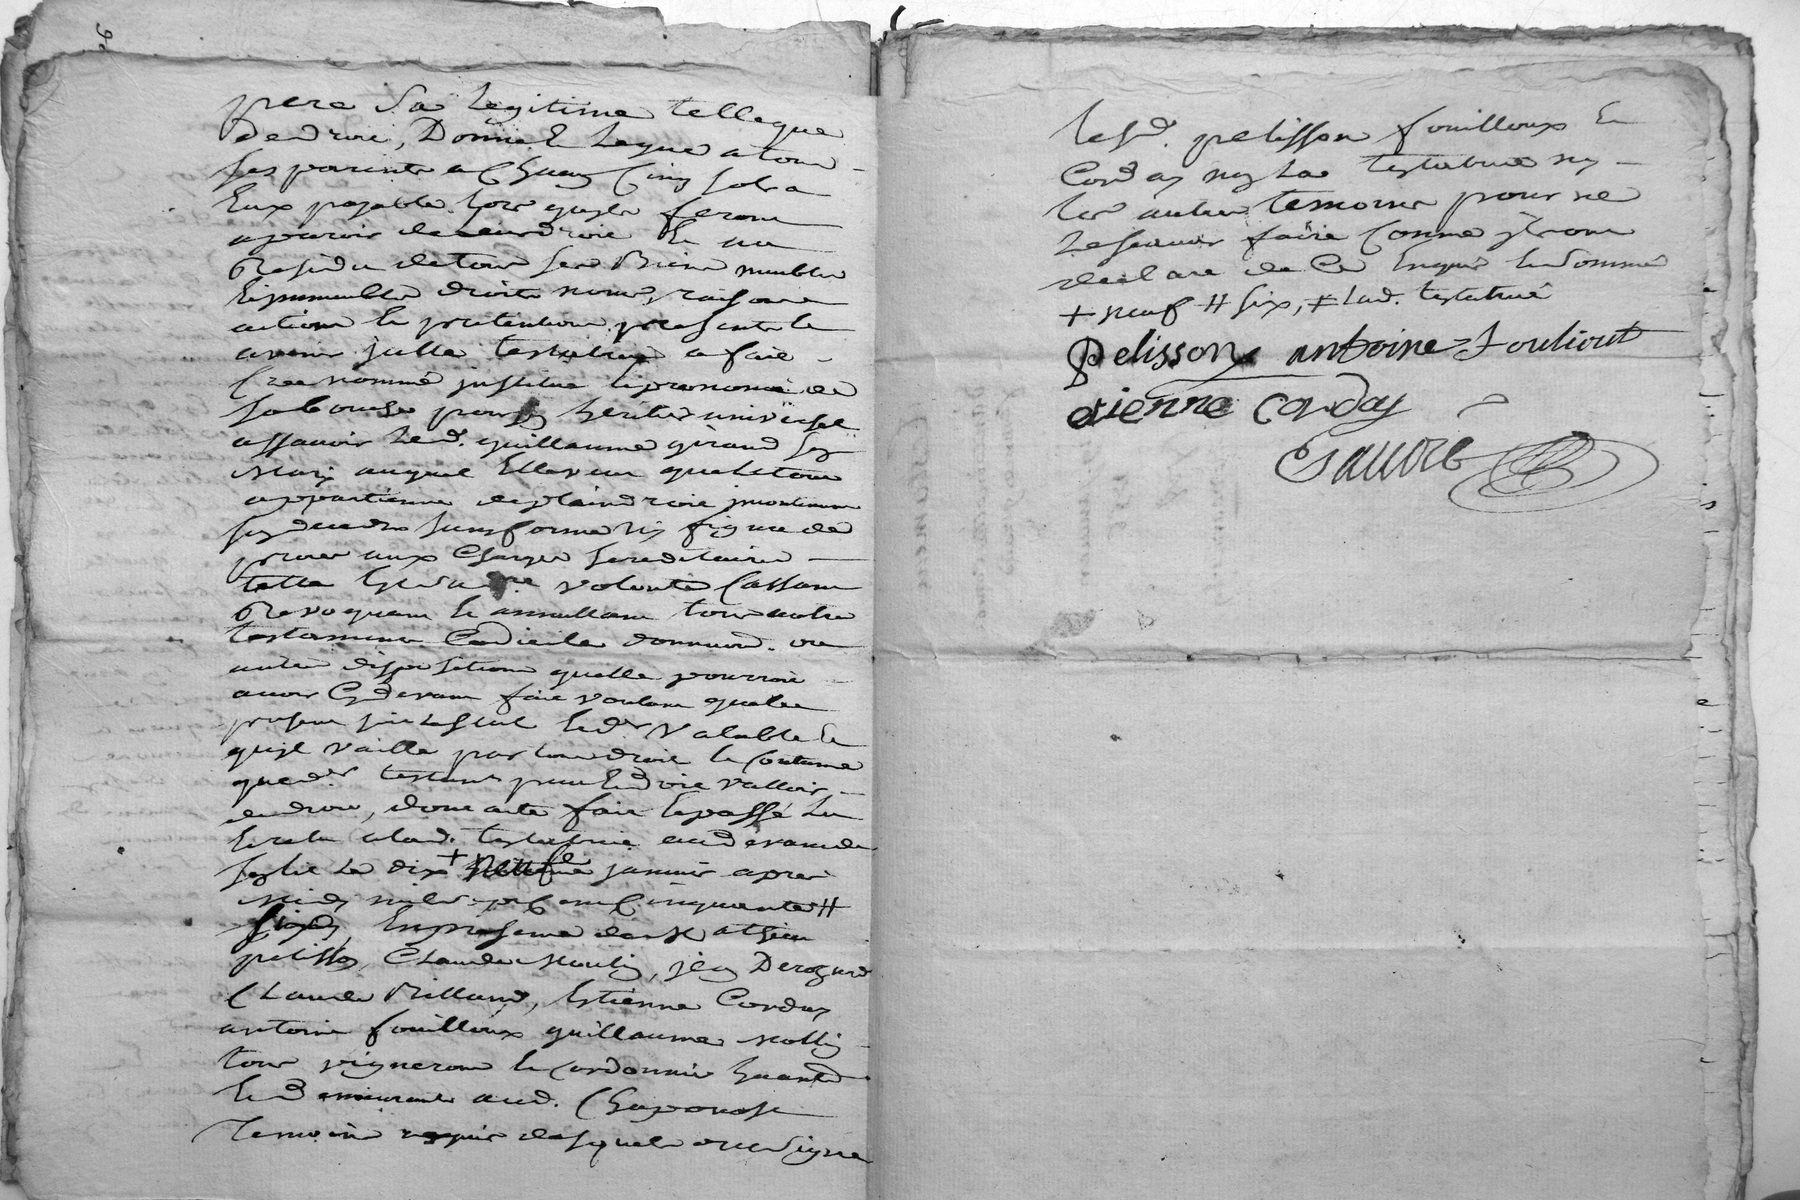 pere sa legitime telleque
de droit, Donne & legue a tous
ses parents a chacun cinq sols a
Eux payable lors quils feront
aparoir de leur droit Et au
Residu de tous ses Biens meubles
Et immeubles droits noms, raisons
actions Et pretentions presents Et
avenir jcelle testatrice a fait
Cree nommé justitue Et prononcé de
sa bouche pour son heritier universel
assavoir led. guillaume giraud son
Mary auquel Elle veut que le tout
appartienne de plein droit jncontinent
son deceds sans forme ny figure de
proces aux charges hereditaires
telle Est sa volonté Cassant
Revoquant Et annullant tous autres
testaments Codicile donnaon. ou
autre disposition quelle pourroit
avoir cydevant fait voulant que le
present soit le seul Et dr. valable Et
quil vaille par tout droit Et Coutume
que dr. testament peut Et doit valloir
en droit, dont acte fait Et passé Lu
Et relu a lad. testatrice aud
le dix + janvier apres
Midy mil sept cent Cinquante #
En presence de sr
pelisson, Claude Moulin, jean
Claude Billaud, Estienne Corday
antoine fouilloux guillaume Mollin
tous vignerons Et Cordonnier
Et Demeurants aud. Chaponost
Temoins requis desquels ont signé
lesd. pelisson fouilloux Et
Corday non La testatrice ny
les autres temoins pour ne
Le scavoir faire Comme jls ont
declaré de Ce Enquis Et sommé
+ neuf # six, ≠ lad. testatrice
Pelisson antoine fouliout
etienne corday